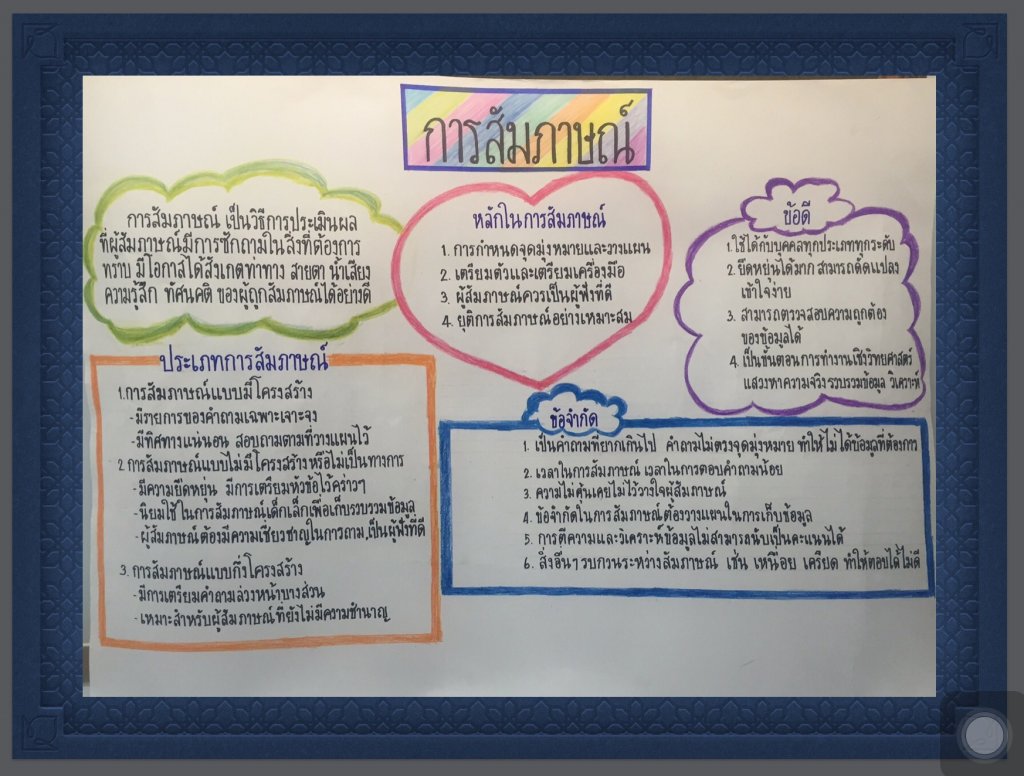 การสัมภาษณ์
การสัมภาษณ์ เป็นวิธีการประเมินผล
ที่ผู้สัมภาษณ์มีการซักถามในสิ่งที่ต้องการ
ทราบ มีโอกาสได้สังเกตท่าทาง สายตา น้ำเสียง
ความรู้สึก ทัศนคติ ของผู้ถูกสัมภาษณ์ได้อย่างดี
หลักในการสัมภาษณ์
1. การกำหนดจุดมุ่งหมายและวางแผน
2. เตรียมตัวและเตรียมเครื่องมือ
3. ผู้สัมภาษณ์ควรเป็นผู้ฟังที่ดี
4. ยุติการสัมภาษณ์อย่างเหมาะสม
ข้อดี
1. ใช้ได้กับบุคคลทุกประเภททุกระดับ
2. ยืดหยุ่นได้มาก สามารถดัดแปลง
เข้าใจง่าย
3. สามารถตรวจสอบความถูกต้อง
ของข้อมูลได้
4. เป็นขั้นตอนการทำงานเชิงวิทยาศาสตร์
แสวงหาความจริง รวบรวมข้อมูล วิเคราะห์
ประเภทการสัมภาษณ์
1.การสัมภาษณ์แบบมีโครงสร้าง
-มีรายการของคำถามเฉพาะเจาะจง
-มีทิศทางแน่นอน สอบถามตามที่วางแผนไว้
2.การสัมภาษณ์แบบไม่มีโครงสร้างหรือไม่เป็นทางการ
-มีความยืดหยุ่น มีการเตรียมหัวข้อไว้คร่าวๆ
-นิยมใช้ในการสัมภาษณ์เด็กเล็กเพื่อเก็บรวบรวมข้อมูล
-ผู้สัมภาษณ์ต้องมีความเชี่ยวชาญในการถาม,เป็นผู้ฟังที่ดี
3. การสัมภาษณ์แบบกึ่งโครงสร้าง
-มีการเตรียมคำถามล่วงหน้าบางส่วน
-เหมาะสำหรับผู้สัมภาษณ์ที่ยังไม่มีความชำนาญ
ข้อจำกัด
1. เป็นคำถามที่ยากเกินไป คำถามไม่ตรงจุดมุ่งหมาย ทำให้ไม่ได้ข้อมูลที่ต้องการ
2. เวลาในการสัมภาษณ์ เวลาในการตอบคำถามน้อย
3. ความไม่คุ้นเคยไม่ไว้วางใจผู้สัมภาษณ์
4. ข้อจำกัดในการสัมภาษณ์ต้องวางแผนในการเก็บข้อมูล
5. การตีความและวิเคราะห์ข้อมูลไม่สามารถนับเป็นคะแนนได้
6. สิ่งอื่นๆรบกวนระหว่างสัมภาษณ์ เช่น เหนื่อย เครียด ทำให้ตอบได้ไม่ดี